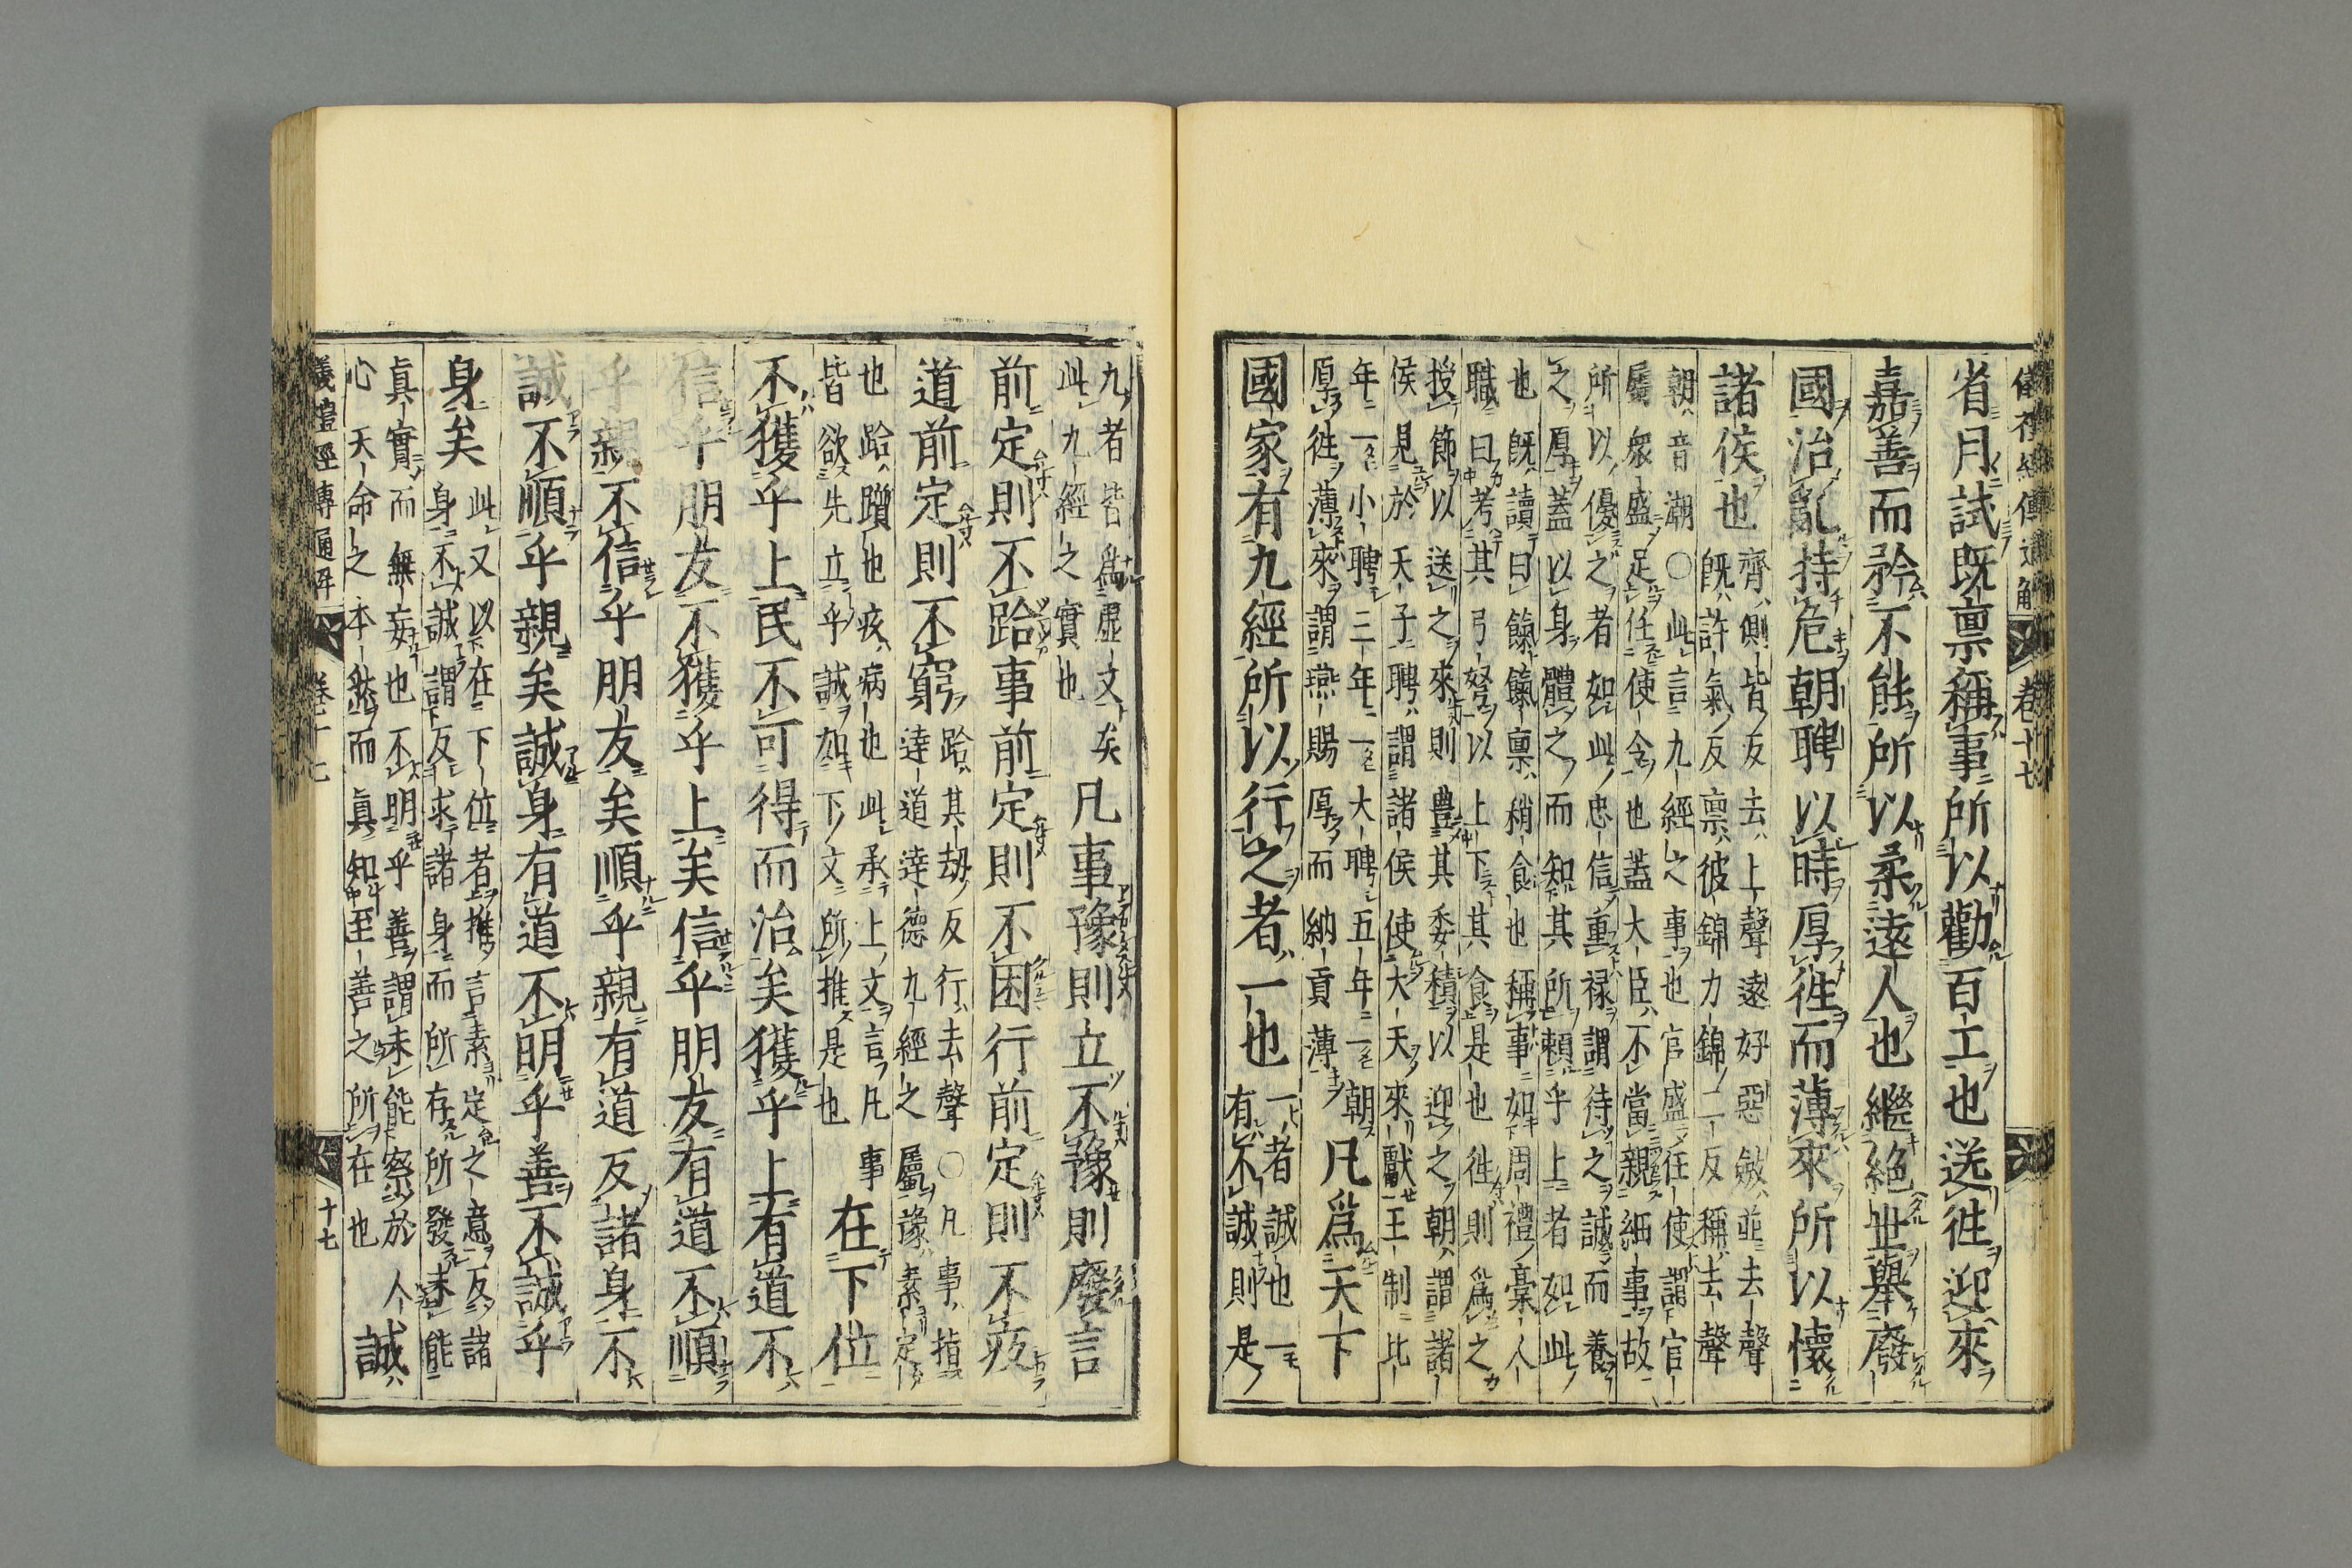 儀禮經傳通解 卷十七
省月試既禀稱事所以勸百工也送徃迎來
嘉善而矜不能所以柔遠人也繼絶世舉廢
國治亂持危朝聘以時厚徃而薄來所以懷
諸侯也
齊側皆反去上聲遠好惡斂並去聲
既許氣反禀彼錦力錦二反稱去聲
朝音潮○此言九經之事也官盛任使謂官
屬衆盛足任使令也蓋大臣不當親細事故
所以優之者如此忠信重禄謂待之誠而養
之厚蓋以身體之而知其所頼乎上者如此
也既讀曰餼餼禀稍食也稱事如周禮槀人
職曰考其弓弩以上下其食是也徃則爲之
授節以送之來則豊其委積以迎之朝謂諸
侯見於天子聘謂諸侯使大夫來獻王制比
年一小聘三年一大聘五年一朝
厚徃薄來謂燕賜厚而納貢薄
凡爲天下
國家有九經所以行之者一也
一者誠也一
有不誠則是
九者皆爲虚文矣
此九經之實也
凡事豫則立不豫則廢言
前定則不跲事前定則不困行前定則不疚
道前定則不窮
跲其劫反行去聲○凡事指
達道達德九經之屬豫素定
也跲躓也疚病也此承上文言凡事
皆欲先立乎誠如下文所推是也
在下位
不獲乎上民不可得而治矣獲乎上有道不
信乎朋友不獲乎上矣信乎朋友有道不順
乎親不信乎朋友矣順乎親有道反諸身不
誠不順乎親矣誠身有道不明乎善不誠乎
身矣
此又以在下位者推言素定之意反諸
身不誠謂反求諸身而所存所發未能
眞實而無妄也不明乎善謂未能察於人
心天命之本然而眞知至善之所在也
誠
儀禮經傳通解 卷十七 十七